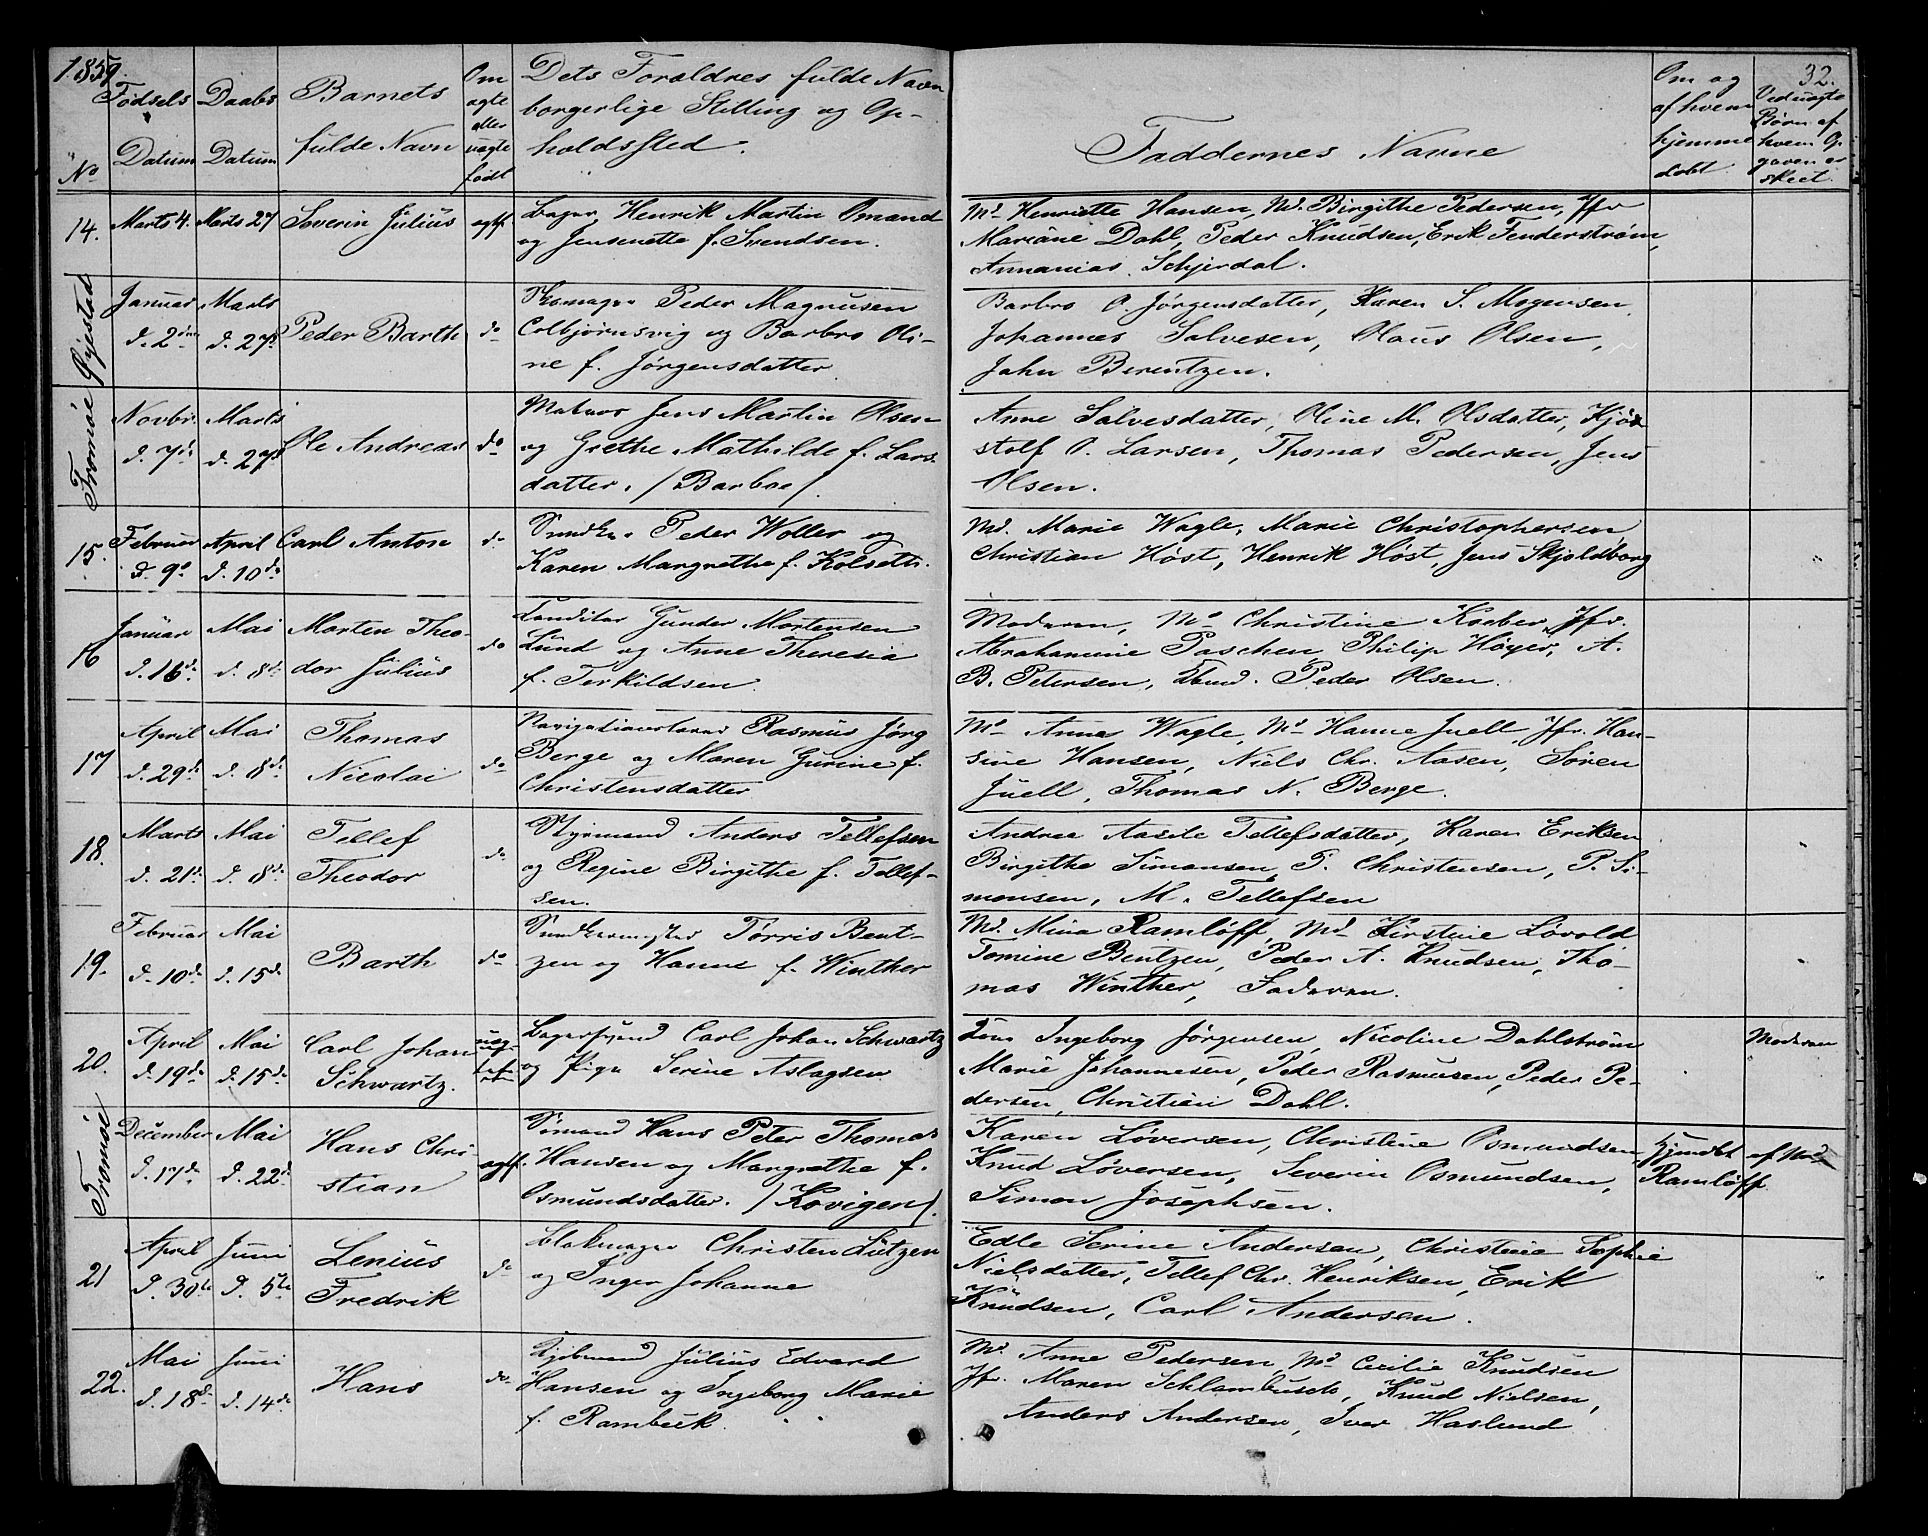 1859.
32.
Fødsels Datum
Daabs Datum
Barnets fulde Navn
Om ægte eller uægte født
Dets Forældres fulde Navn
borgerlige Stilling og Op-
holdssted.
No
Faddernes Navne
Om og af hvem hjemme døbt.
Ved uægte Børn af hvem Op-gaven er skeet.
14. Marts 4. Marts 27 Severin Julius ægtf.
Bager, Henrik Martin Omand
og Jensenette f. Svendsen.
Md. Henriette Hansen, Md. Birgithe Pedersen, Jfr
Mariane Dahl, Peder Knudsen, Erik Fenderstrøm,
Annanias Schjerdal.
Øjestad
Januar d. 2den Marts d. 27d Peder Barth do
Peder Magnusen
Colbjørnsvig og Barbro Oli-
ne f. Jørgensdatter
Barbro O. Jørgensdatter, Karen S. Mogensen,
Johannes Salvesen, Olaus Olsen,
John Berentzen.
Tromøe
Novbr. d. 7d Marts d. 27d Ole Andreas do
Matros Jens Martin Olsen
og Grethe Mathilde f. Lars-
datter. / Barboe /.
Anne Salvesdatter, Oline M. Olsdatter, Kjød-
stolf O. Larsen, Thomas Pedersen, Jens
Olsen.
15. Februar d. 9d April d. 10de Carl Anton do
Peder Woller og
Karen Margrethe f. Kolseth.
Md. Marie Wagle, Marie Christophersen,
Christian Høst, Henrik Høst, Jens Skjoldborg
16 Januar d. 16de Mai d. 8de Morten Theo-
dor Julius do
Konditor Gunder Mortensen
Lund og Anne Theresia
f. Terkildsen.
Moderen, Md. Christine Koeber, Jfr.
Abrahamine Paschen, Philip Høyer, A.
B. Petersen, Peder Olsen.
17 April d. 29de Mai d. 8de Thomas
Nicolai do
Navigationslærer Rasmus Jørg
Berge og Maren Gurine f.
Christensdatter
Md. Anne Wagle, Md. Hanne Juell, Jfr. Han-
sine Hansen, Niels Chr. Aasen, Søren
Juell, Thomas N. Berge.
18. Marts d. 21de Mai d. 8de Tellef
Theodor do
Styrmand Anders Tellefsen
og Regine Birgithe f. Tellef-
sen.
Andrea Aasele Tellefsdatter, Karen Eriksen
Birgithe Simonsen, T. Christensen, P. Si-
monsen, M. Tellefsen
19. Februar d. 10de Mai d. 15de Barth do
Tørris Bent-
zen og Hanne f. Winther
Md. Mina Ramløff, Md. Kirstine Løvold
Tomine Bentzen, Peder A. Knudsen, Tho-
mas Winther, Faderen.
20. April d. 19de Mai d. 15de Carl Johan
Schwartz.
Bagersvend Carl Johan Schwartz
og Pige Serine Aslagsen
Ingeborg Jørgensen, Nicoline Dahlstrøm
Marie Johannesen, Peder Rasmusen, Peder Pe-
dersen, Christian Dahl.
Moderen
Tromøe
December d. 17de Mai d. 22de Hans Chri-
stian ægtf.
Sømand Hans Peter Thomas
Hansen og Margrethe f.
Osmundsdatter. / Kovigen /.
Karen Løversen, Christine Osmundsen,
Knud Løversen, Severin Osmundsen,
Simon Josephsen.
Hjemdbt af Md. Ramløff.
21 April d. 30te Juni d. 5te Lenius
Fredrik do
Blokmager Christen Lützen
og Inger Johanne
Edle Serine Andersen, Christine Sophie
Nielsdatter, Tellef Chr. Henriksen, Erik
Knudsen, Carl Andersen.
22. Mai d. 18de Juni d. 14de Hans do
Kjøbmand Julius Edvard
Hansen og Ingeborg Marie
f. Rambeck.
Md. Anne Pedersen, Md. Cecilie Knudsen
Jfr. Maren Schlambusch, Knud Nielsen,
Anders Andersen, Iver Haslund